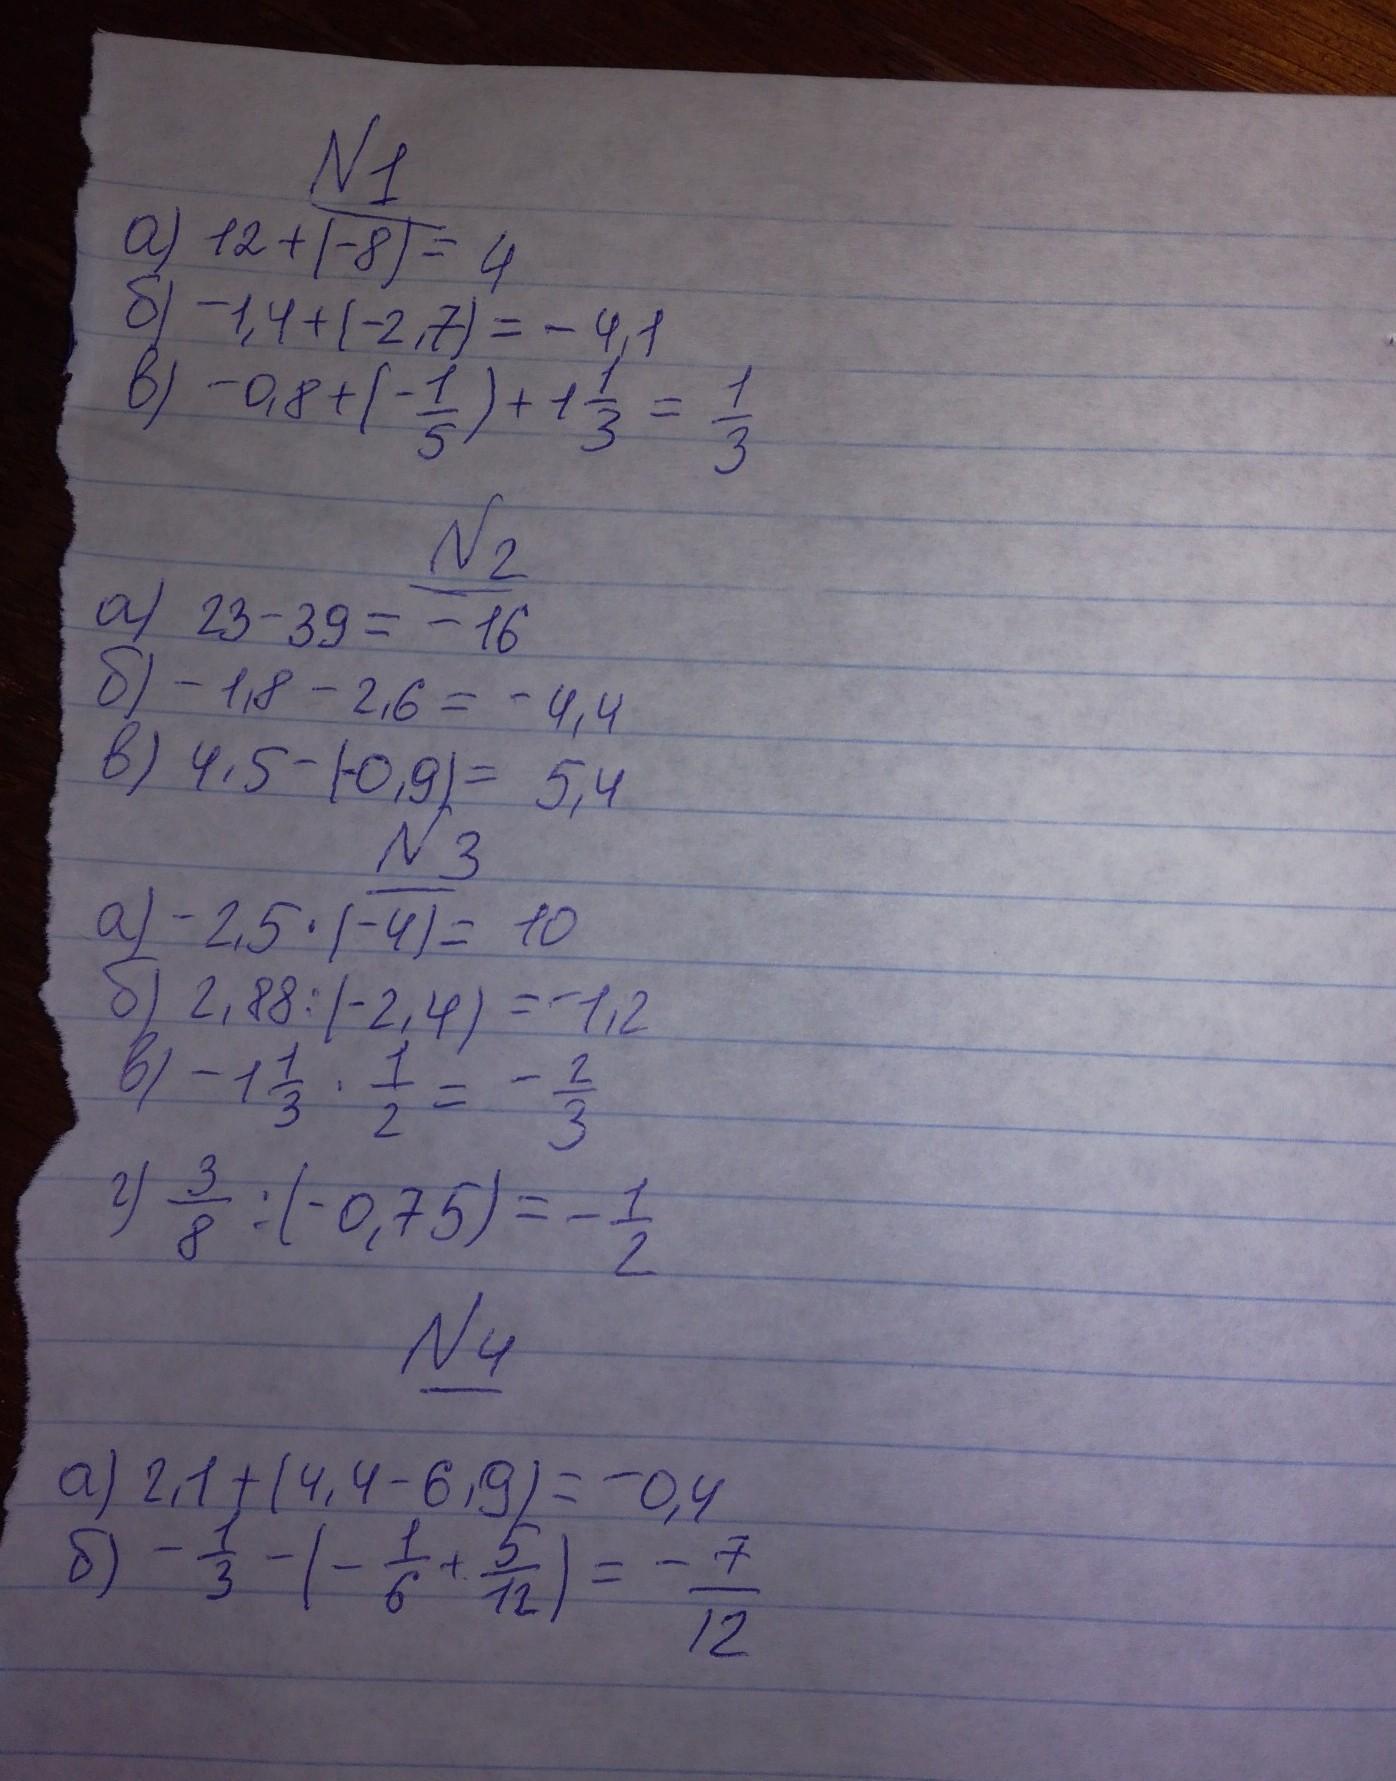 N1
а) 12+(-8)= 4
б) -1,4+(-2,7)= -4,1
в) -0,8+(-1/5)+1 1/3 = 1/3
N2
а) 23-39= -16
б) -1,8-2,6= -4,4
в) 4,5-(-0,9)= 5,4
N3
а) -2,5·(-4)= 10
б) 2,88:(-2,4)=-1,2
в) -1 1/3 · 1/2 = -2/3
г) 3/8 :(-0,75)= -1/2
N4
а) 2,1+(4,4-6,9)=-0,4
б) -1/3-(-1/6+5/12)= -7/12